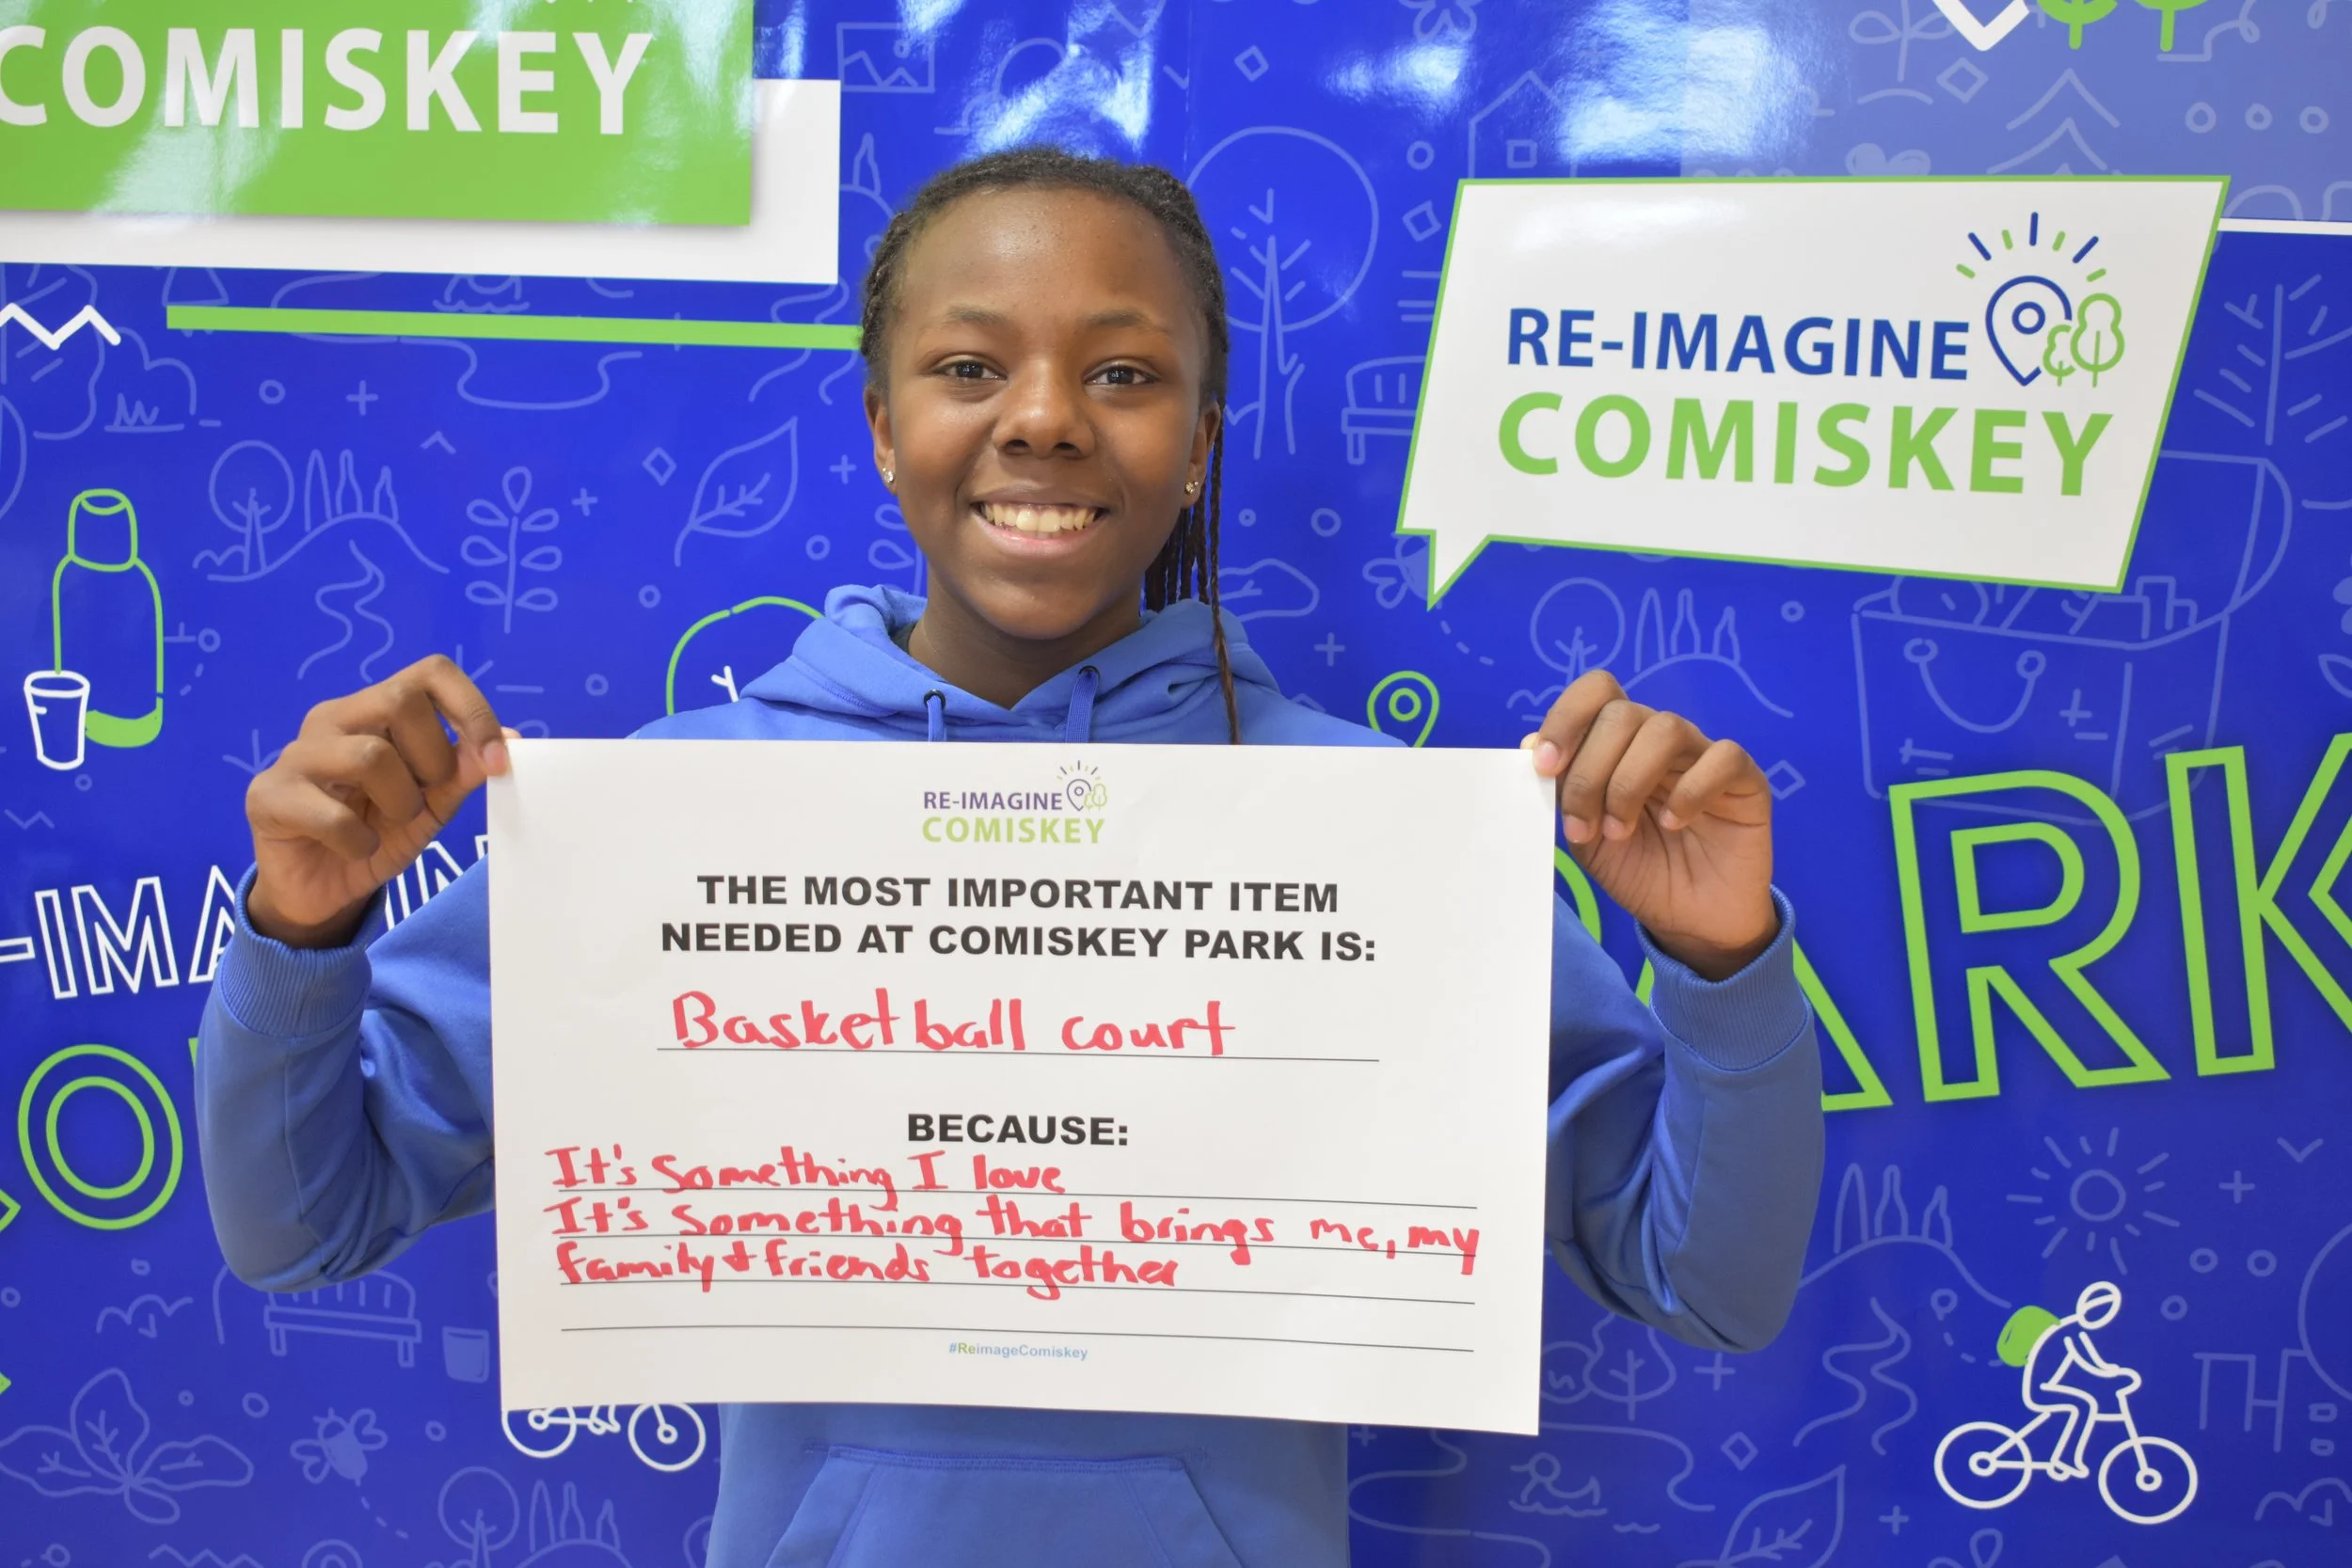 COMISKEY
RE-IMAGINE
COMISKEY
RE-IMAGINE
COMISKEY
THE MOST IMPORTANT ITEM
NEEDED AT COMISKEY PARK IS:
Basketball court
BECAUSE:
It's something I love
It's something that brings me, my
family + friends together
#ReimageComiskey
PARK